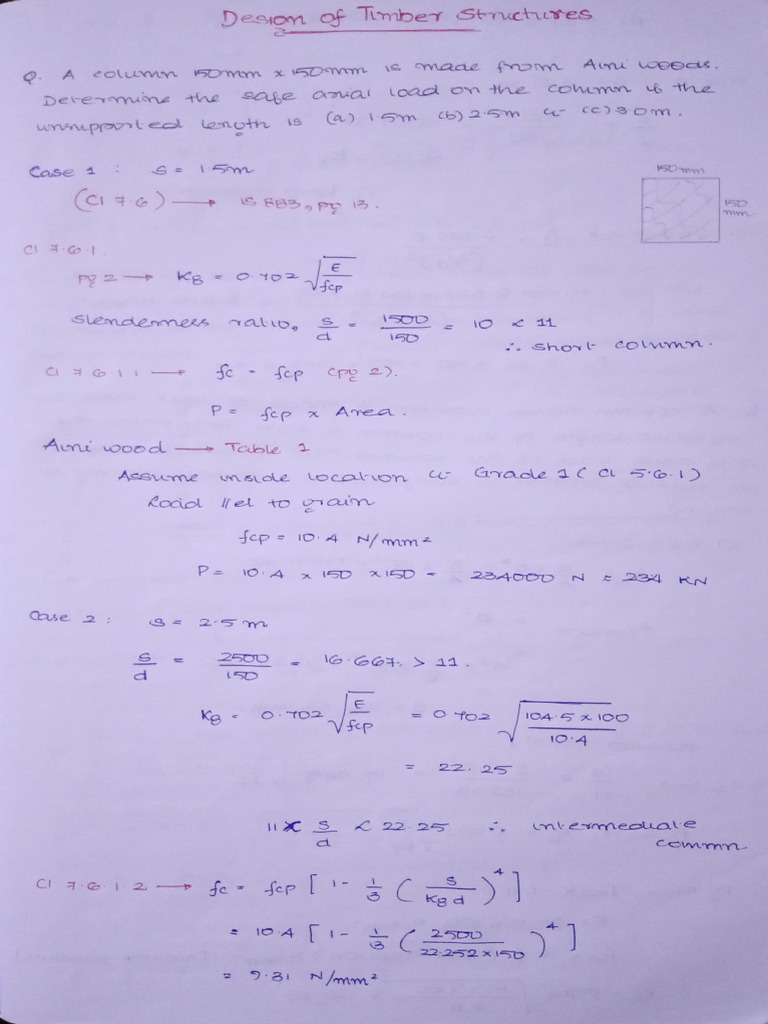 Design of Timber Structures
Q. A column 150mm x 150mm is made from Aini woods.
Determine the safe axial load on the column if the
unsupported length is (a) 1.5m (b) 2.5m & (c) 3.0m.
Case 1 : S = 1.5m
150mm
150
mm.
(Cl 7.6) → IS 883, pg 13.
Cl 7.6.1
pg 2 → K8 = 0.702 √ E/fcp
Slenderness ratio, S/d = 1500/150 = 10 < 11
∴ short column.
Cl 7.6.1.1 → fc = fcp (pg 2).
P = fcp x Area.
Aini wood → Table 1
Assume inside location & Grade 1 (Cl 5.6.1)
Load llel to grain
fcp = 10.4 N/mm²
P = 10.4 x 150 x 150 = 234000 N = 234 KN
Case 2 : S = 2.5m
S/d = 2500/150 = 16.667. > 11.
K8 = 0.702 √ E/fcp = 0.702 √ 104.5 x 100/10.4
= 22.25
11 < S/d < 22.25 ∴ intermediate
column
Cl 7.6.1.2 → fc = fcp [ 1 - 1/3 ( S/K8 d )⁴ ]
= 10.4 [ 1 - 1/3 ( 2500/22.252 x 150 )⁴ ]
= 9.31 N/mm²